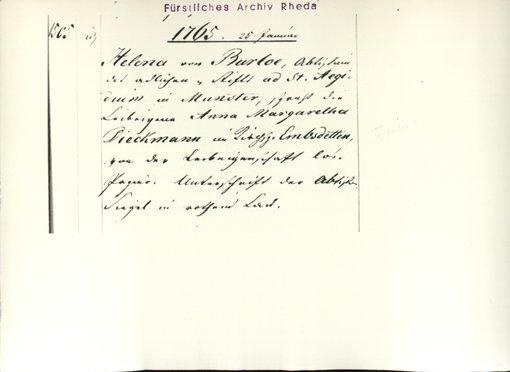 Fürstliches Archiv Rheda
1765. 25 Januar
Helena von Burloe, Abtissin
des adlichen Stifts ad St. Aegi-
dium in Munster, spricht die
Leibeigene Anna Margaretha
Dieckmann im Kirchsp. Embsdetten,
von der Leibeigenschaft los.
Papier. Unterschrift der Abtissin
Siegel in rothem Lack.